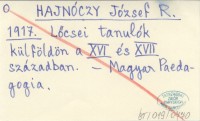 HAJNÓCZY József R.
1917. Lőcsei tanulók
külföldön a XVI és XVII
században. – Magyar Paeda-
gogia.